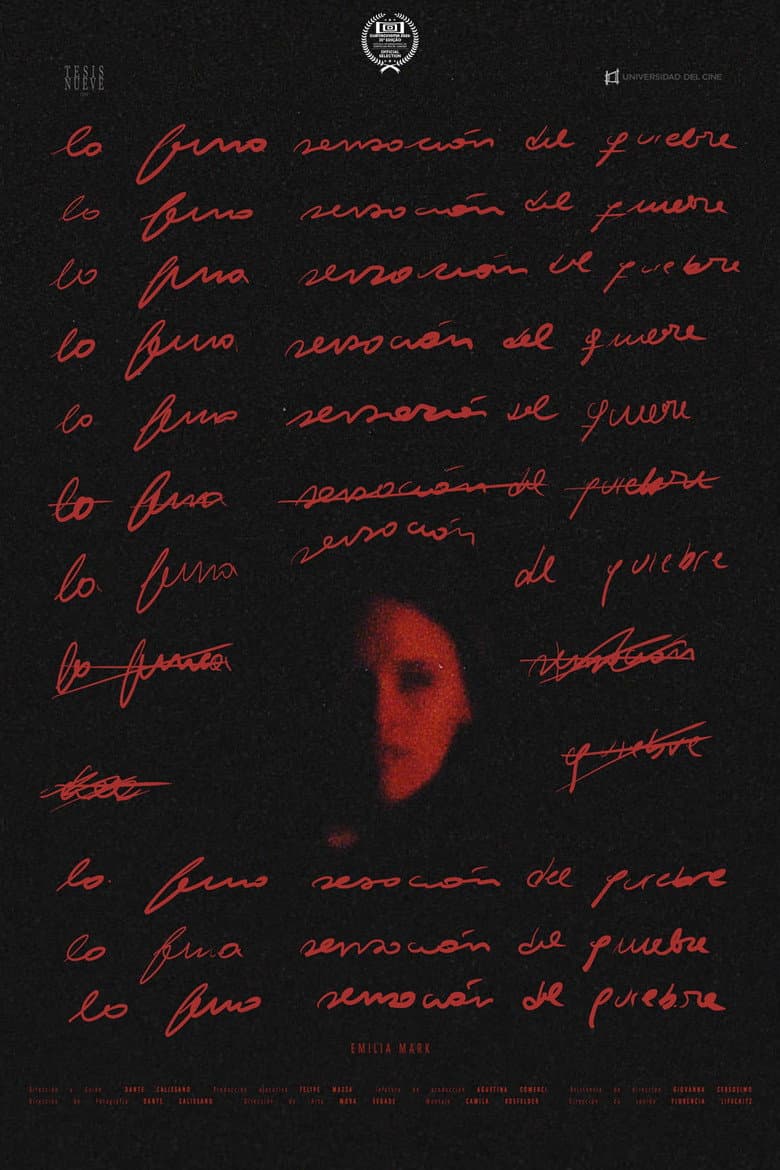 OFFICIAL
SELECTION
TESIS
NUEVE
UNIVERSIDAD DEL CINE
la fina sensación del quiebre
la fina sensación del quiebre
la fina sensación del quiebre
la fina sensación del quiebre
la fina sensación del quiebre
la fina sensación del quiebre
sensación
la fina del quiebre
la fina sensación
quiebre
la fina sensación del quiebre
la fina sensación del quiebre
la fina sensación del quiebre
EMILIA MARK
Dirección y Guion DANTE CALISSANO Producción ejecutiva FELIPE MASSA Jefatura de producción AGUSTINA COMENCI Asistencia de dirección GIOVANNA CERSOSIMO
Dirección de Fotografía DANTE CALISSANO Dirección de Arte MORA SEGADE Montaje CAMILA ROSFELDER Dirección de sonido FLORENCIA LIFSCHITZ